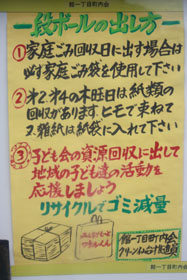 館一丁目町内会
一段ボールの出し方一
①家庭ごみ回収日に出す場合は
必ず家庭ごみ袋を使用して下さい
②オ2、オ4の木曜日は紙類の
回収があります。ヒモで束ねて
又、雑紙は紙袋に入れて下さい
③子ども会の資源回収に出して
地域の子ども達の活動を
応援しましょう
リサイクルでゴミ減量
館一丁目町内会
クリーン仙台推進員
館一丁目町内会